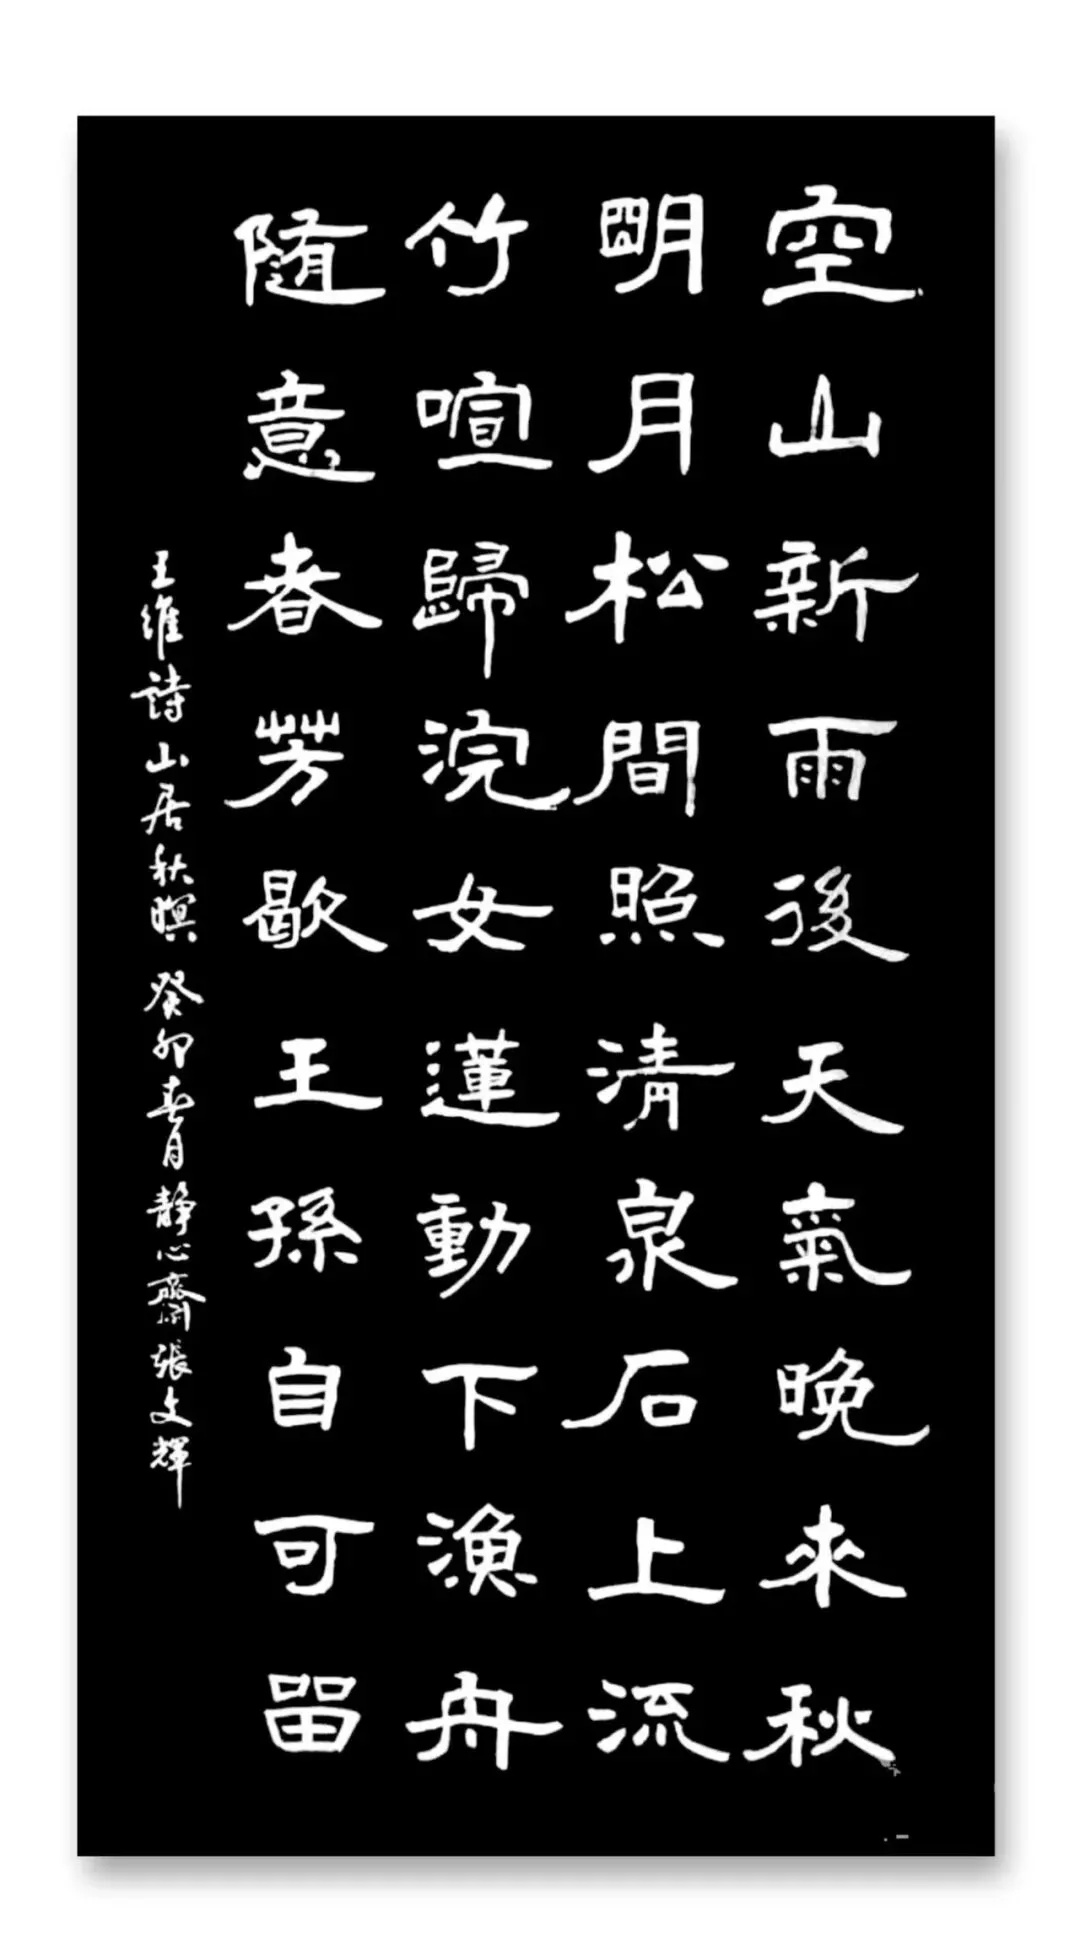 空山新雨後天氣晚来秋
明月松間照清泉石上流
竹喧歸浣女蓮動下漁舟
随意春芳歇王孫自可留
王維詩山居秋暝癸卯春月靜心齋張文輝